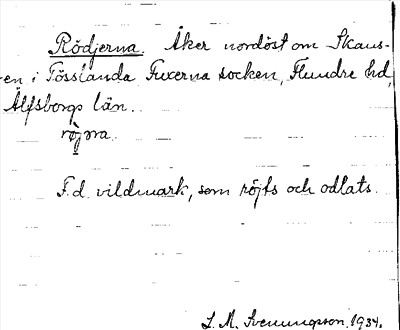 Rödjerna. Åker nordöst om Skaus-
en i Fösslanda Fuxerna socken, Flundre hd,
Älfsborgs län.
F.d. vildmark, som röjts och odlats.
S. M. Svenungsson. 1934.